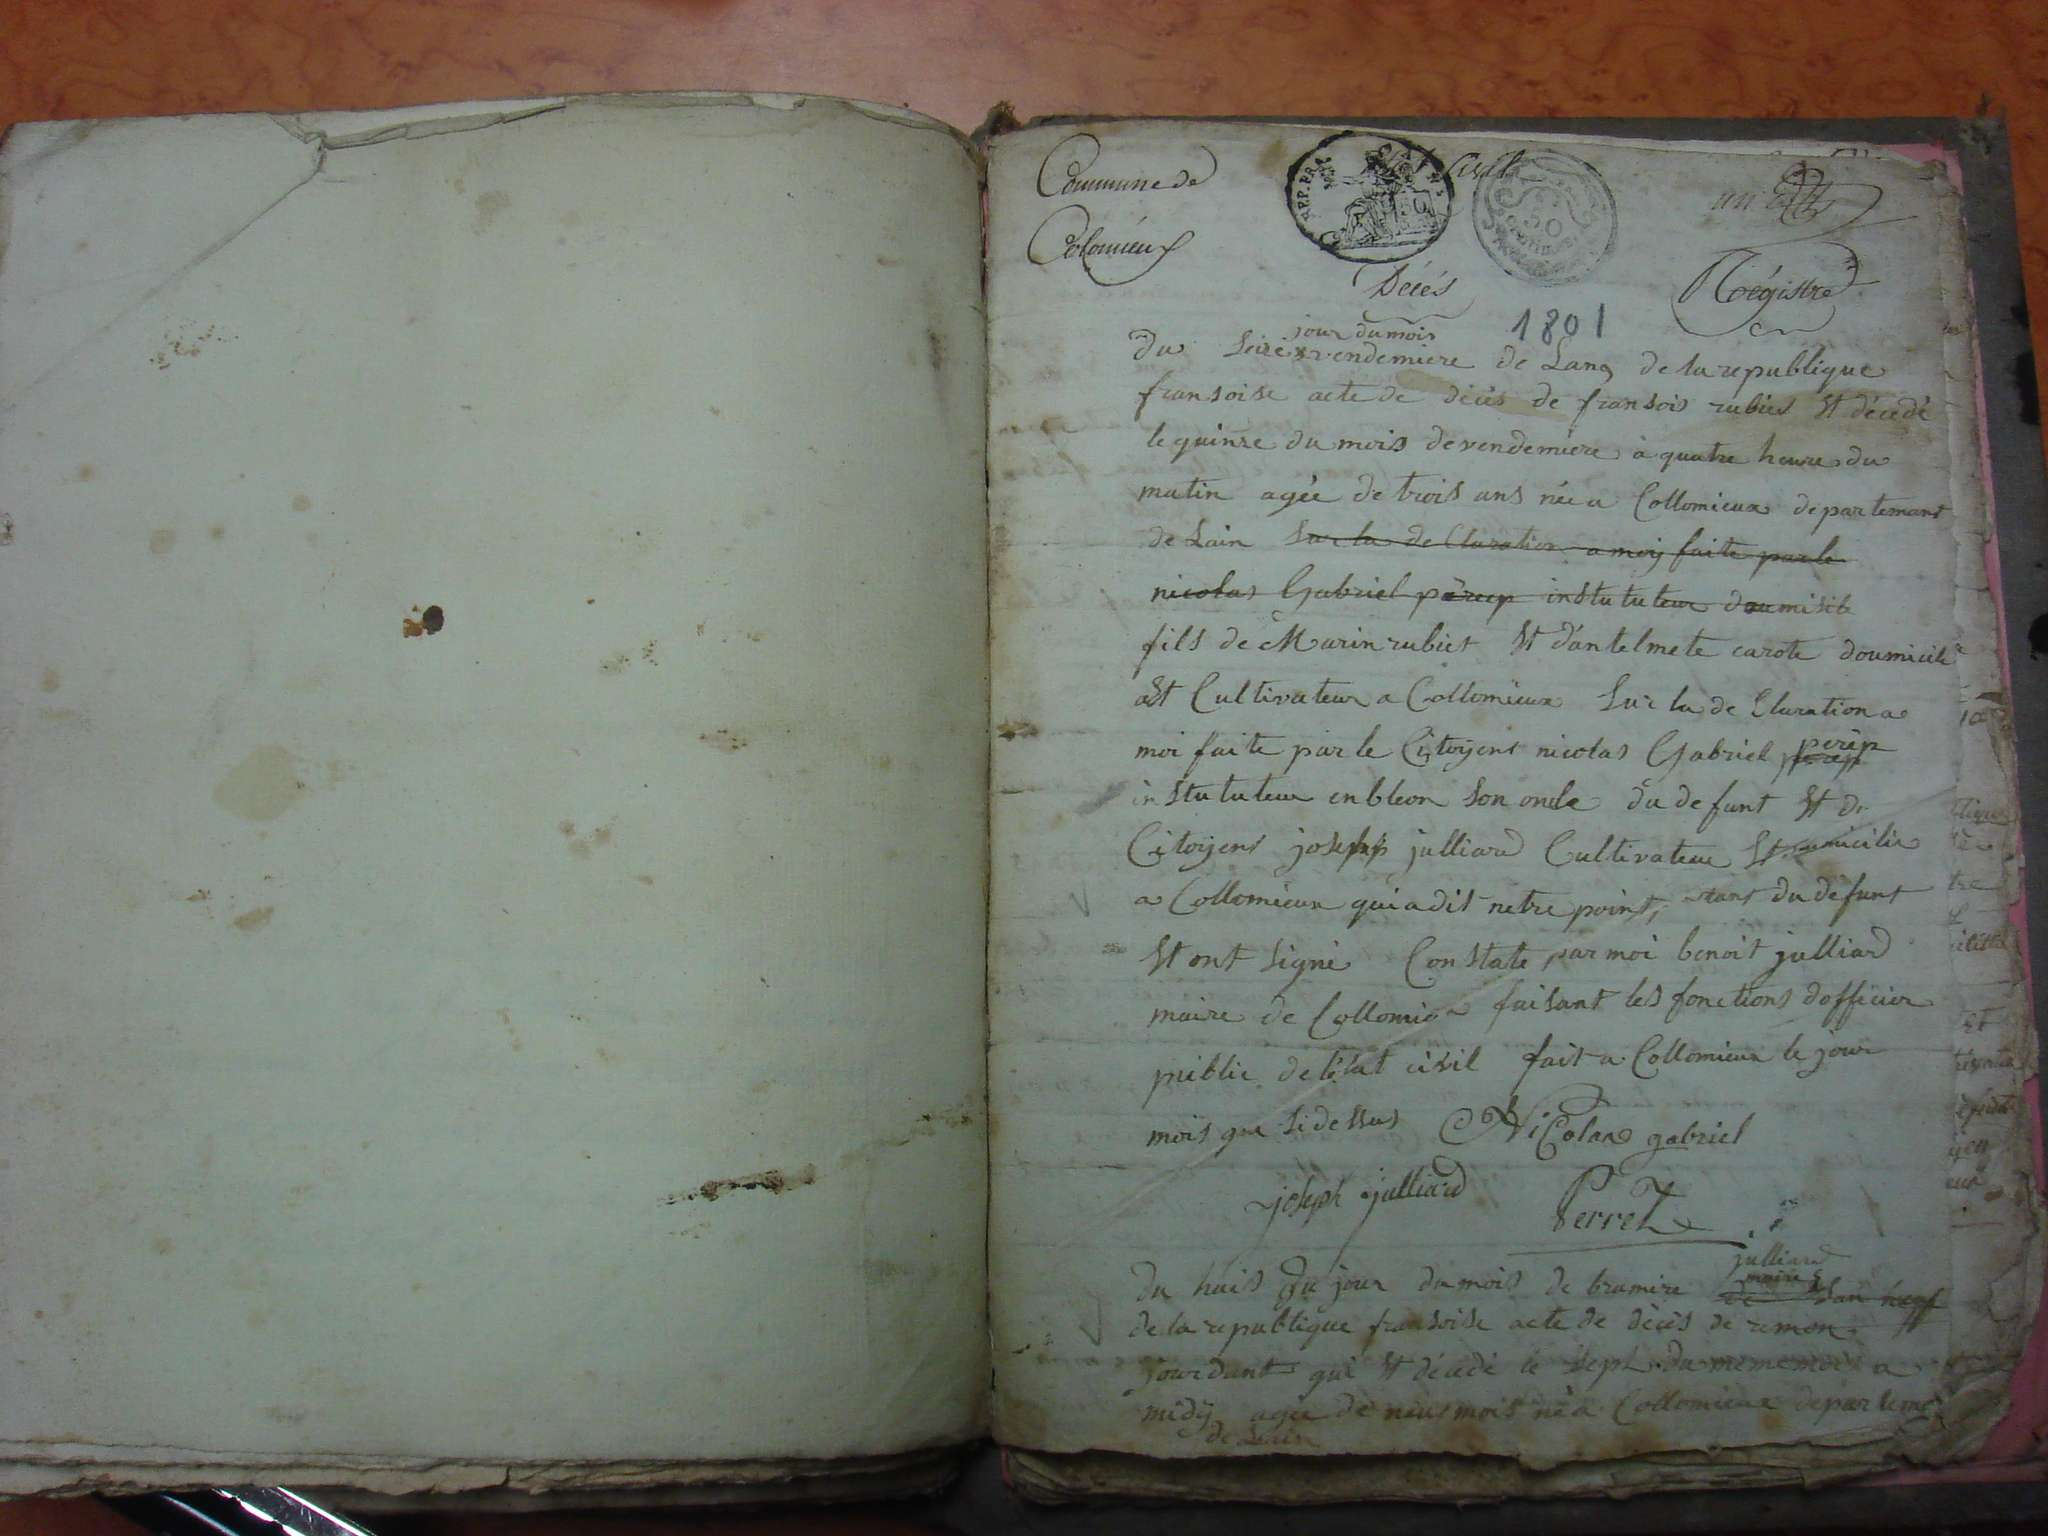 Commune de
Colomieux
REP. FRA
50
centimes
Décés
Régistre
1801
jour du mois
Du seize vendemiere de Lan 9 de la republique
fransoise acte de décés de fransois rubiet St décédé
le quinze du mois de vendemiere a quatre heure du
matin agée de trois ans née a Collomieux departemant
de Lain sur la de Claration a moy faite par le
nicolas Gabriel instututeur doumisile
fils de Marin rubiet St d'antelmete carote doumicilé
Cultivateur a Collomieux Sur la de Claration a
moi faite par le Citoyens nicolas Gabriel
instututeur en bleon son oncle du defunt St de
Citoyens joseph julliard Cultivateur St
a Collomieux qui a dit netre point, du défunt
St ont signé Constate par moi benoit julliard
maire de Collomieux faisant les fonctions dofficier
public de létat civil fait a Collomieux le jour
mois que sidessus Nicolas gabriel
joseph julliard Perret
julliard
maire
Du huis du jour du mois de brumire de Lan neuf
de la republique fransoise acte de décés de remon
jourdant qui St décédé le sept du meme mois a
midy agée de neuf mois né a Collomieux departeme
de Lain